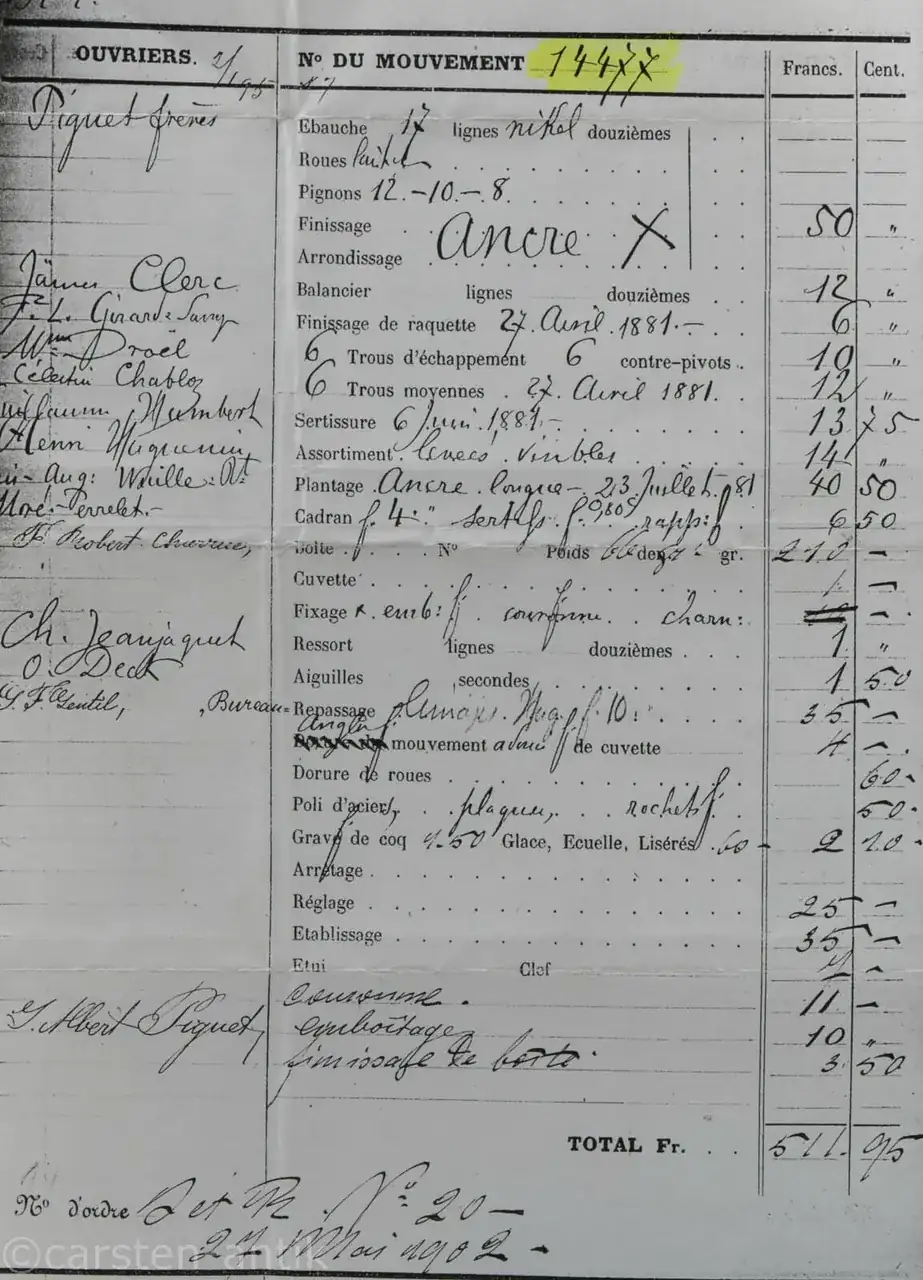 OUVRIERS. Nº DU MOUVEMENT 14477 Francs. Cent.
Piguet frères
Ebauche 17 lignes nikel douzièmes
Roues
Pignons 12.-10.-8.
Finissage Ancre X 50 "
Arrondissage
James Clerc Balancier lignes douzièmes 12 "
Girard Finissage de raquette 27. Avril. 1881.- 6 "
Droël 6 Trous d'échappement 6 contre-pivots 10 "
Célestin Chabloz 6 Trous moyennes 27. Avril 1881. 12 "
Humbert Sertissure 6 Juin. 1881.- 13 75
Henri Huguenin Assortiment levées visibles 14 "
Aug: Wuille Plantage Ancre longue - 23 Juillet 81 40 50
Perrelet.- Cadran f. 4." 6 50
Robert Boite Nº Poids gr. 210 -
Cuvette -
Fixage couronne charn: -
Ch. Jeanjaquet Ressort lignes douzièmes 1 "
Aiguilles secondes 1 50
Gentil, Bureau Repassage 35 -
mouvement de cuvette 4 -
Dorure de roues 60-
Poli d'aciers, plaques, rochets 50-
Grav de coq 1.50 Glace, Ecuelle, Lisérés 60 - 2 10-
Arrêtage
Réglage 25 -
Etablissage 35 -
Etui Clef -
couronne. 11 -
Albert Piguet, emboîtage 10 "
finissage de boîte. 3 50
TOTAL Fr. 511. 95
Nº d'ordre Nº 20-
27 Mai 1902-
©carsten-antik